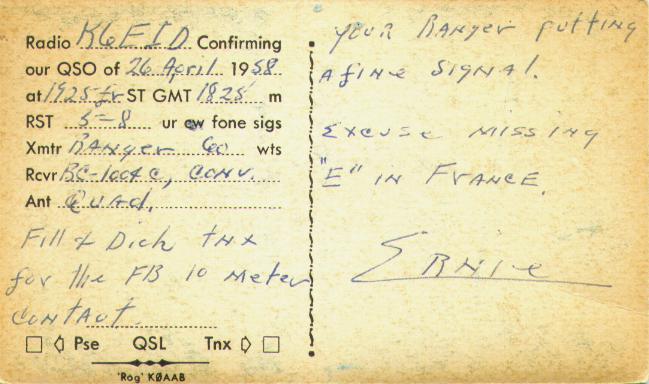 Radio K6EID Confirming
our QSO of 26 April 1958
at 1925 fr ST GMT 1825 m
RST 5-8 ur cw fone sigs
Xmtr Ranger 60 wts
Rcvr BC-1004C, CONV.
Ant Quad.
Fill & Dick tnx
for the FB 10 meter
contact.
Pse QSL Tnx
'Rog' KØAAB
your Ranger putting
a fine signal.
Excuse missing
"E" in France.
Ernie